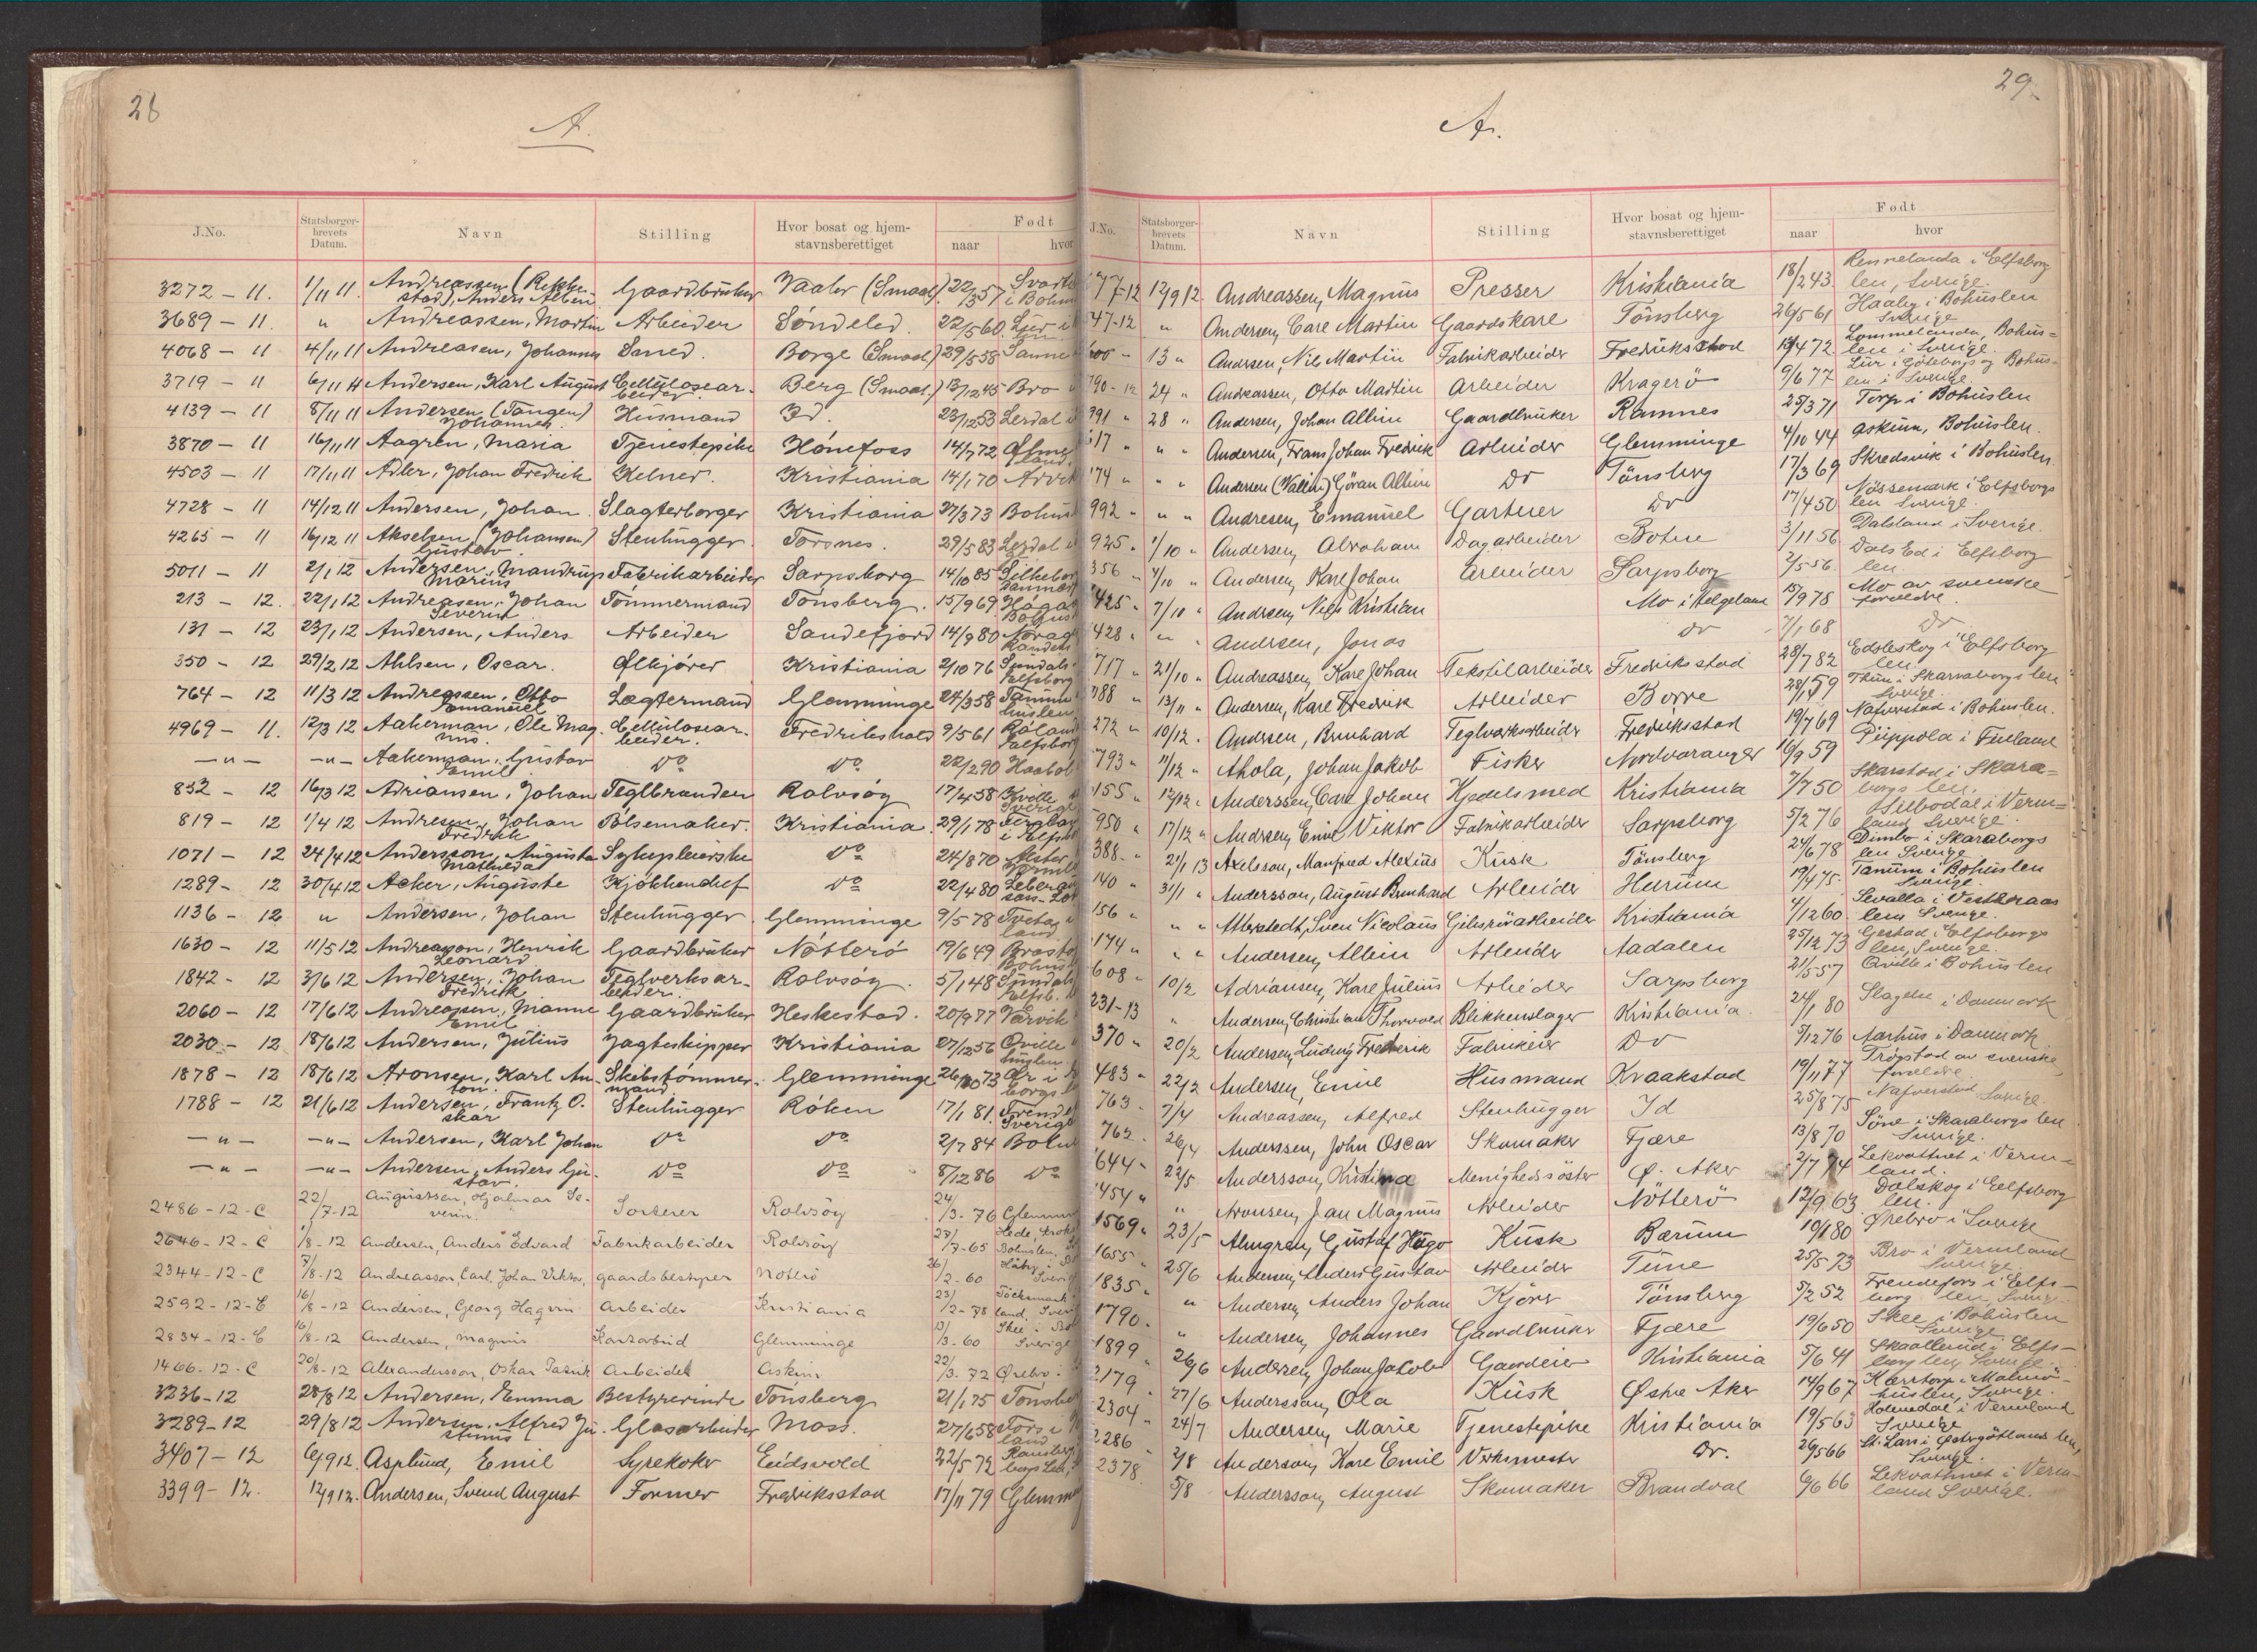 28
A.
J.No.
Statsborger-
brevets
Datum.
Navn
Stilling
Hvor bosat og hjem-
stavnsberettiget
Født
naar
hvor
3272 - 11. 1/11 11. Andreassen (Rekke-
stad), Anders Alben Gaardbruker Vaaler (Smaal.) 22/3 57
3689 - 11 " Andreassen, Martin Arbeider Söndeled. 22/5 60.
4068 - 11 4/11 11 Andreasen, Johannes Smed. Borge (Smaal.) 29/5 58
3719 - 11 6/11 11 Andersen, Karl August Cellulosear-
beider Berg (Smaal.) 13/12 45 Bro
4139 - 11 8/11 11 Andersen (Tangen)
Johannes. Husmand Id. 23/12 53 Lerdal
3870 - 11 16/11 11 Aagren, Maria Tjenestepike Hönefoss 14/7 72
4503 - 11 17/11 11 Adler, Johan Fredrik Kelner. Kristiania 14/1 70
4728 - 11 14/12 11 Andersen, Johan. Slagterborger Kristiania 27/3 73
4265 - 11 16/12 11 Akselsen (Johansen)
Gustav. Stenhugger. Torsnes. 29/5 83 Lerdal
5011 - 11 2/1 12 Andersen, Mandrup
Marius Fabrikarbeider Sarpsborg 14/10 85
213 - 12. 22/1 12 Andreasen, Johan
Severin Tömmermand Tönsberg. 15/9 69
131 - 12 23/1 12 Andersen, Anders Arbeider Sandefjord 14/9 80
350 - 12 29/2 12 Ahlsen, Oscar. Ølkjörer Kristiania 2/10 76
764 - 12 11/3 12 Andreassen, Otto
Emanuel Lægtermand Glemminge 24/3 58
4969 - 11. 12/3 12 Aakerman, Ole Mag-
nus. Cellulosear-
beider. Fredrikshald 9/5 61
— " — — " — Aakerman, Gustav
Emil Do Do 22/2 90
832 - 12 16/3 12 Adriansen, Johan Teglbrænder Rolvsöy 17/4 58
819 - 12 1/4 12 Andresen, Johan
Fredrik Pölsemaker. Kristiania. 29/1 78
1071 - 12 24/4 12 Andersson, Augusta
Mathilda Sykepleierske Do 24/8 70
1289 - 12 30/4 12 Acker, Auguste Kjökkenchef Do 22/4 80
1136 - 12 " Andersen, Johan Stenhugger. Glemminge 9/5 78
1630 - 12 11/5 12 Andreasson, Henrik
Leonard Gaardbruker Nötterö 19/6 49
1842 - 12 3/6 12 Andersen, Johan
Fredrik Teglverksar-
beider. Rolvsöy. 5/1 48
2060 - 12 17/6 12 Andreasen, Manne
Emil Gaardbruker Heskestad. 20/9 77
2030 - 12 18/6 12 Andersen, Julius Jagteskipper Kristiania 27/12 56
1878 - 12 18/6 12 Aronsen, Karl An-
ton. Skibstömmer-
mand. Glemminge 26/10 73
1788 - 12 21/6 12 Andersen, Frantz O-
skar Stenhugger Röken 17/1 81.
— " — — " — Andersen, Karl Johan Do Do 2/7 84
— " — — " — Andersen, Anders Gu-
stav. Do Do 8/12 86 Do
2486-12-C 22/7-12 Augustsen, Hjalmar Se-
verin. Sorterer Rolvsöy 24/3-76
2646-12-C 1/8-12 Andersen, Anders Edvard Fabrikarbeider Rolvsöy 27/7-65
2344-12-C 7/8-12 Andreasson, Carl Johan Viktor, gaardsbestyrer Nöterö 26/2-60
2592-12-C 16/8-12 Andersen, Georg Hagvin Arbeider Kristiania 23/2-78
2834-12-C 16/8-12 Andersen, Magnus Glemminge 13/3-60
1466-12-C 20/8-12 Alexandersson, Oskar Patrik Arbeider Askim 22/3-72
3236-12 28/8 12 Andersen, Emma Bestyrerinde Tönsberg 21/1 75
3289-12 29/8 12 Andersen, Alfred Ju-
stinus Glasarbeider Moss. 27/6 58
3407-12 6/9 12. Asplund, Emil Syrekoker Eidsvold 22/5 72
3399-12. 12/9 12. Andersen, Svend August Former Fredriksstad 17/11 79
29
A.
J.No.
Statsborger-
brevets
Datum.
Navn
Stilling
Hvor bosat og hjem-
stavnsberettiget
Født
naar
hvor
12/9 12. Andreassen, Magnus Presser Kristiania 18/2 43. Rennelanda i Elfsborg
len, Sverige.
" Andersen, Carl Martin Gaardskarl Tönsberg 26/5 61 Haaby i Bohuslen
Sverige
13 " Andersen, Nils Martin Fabrikarbeider Fredriksstad Lommelanda, Bohus-
len i Sverige.
24 " Andreassen, Otto Martin Arbeider Kragerö 9/6 77 Lur i Göteborgs og Bohus-
len i Sverige.
28 " Andersen, Johan Albin Gaardbruker Ramnes 25/3 71 Torp i Bohuslen
" " Andersen, Frans Johan Fredrik Arbeider Glemminge 4/10 44 Askum, Bohuslen.
" " Andersen (Wallin) Göran Albin Do Tönsberg 17/3 69 Skredsvik i Bohuslen.
992 " " Andresen, Emanuel Gartner Do 17/4 50 Nössemark i Elfsborgs
len Sverige.
925 " 1/10 " Andersen, Abraham Dagarbeider Botne 3/11 56 Dalsland i Sverige.
356 " 4/10 " Andersen, Karl Johan Arbeider Sarpsborg 2/5 56. Dals Ed i Elfsborg
len.
425 " 7/10 " Andersen, Nils Kristian Mo i Helgeland 15/9 78 Mo av svenske
forældre.
428 " " Andersen, Jonas Do 7/1 68 Do
717 " 21/10 " Andreassen, Karl Johan Tekstilarbeider Fredriksstad 28/7 82 Edsleskog i Elfsborg
len.
788 " 13/11 " Andersen, Karl Fredrik Arbeider Borre 28/1 59 Thun i Skaraborgs len
Sverige.
272 " 10/12. Andersen, Bernhard Teglverksarbeider Fredriksstad 19/7 69 Nafverstad i Bohuslen.
793 " 11/12 " Ahola, Johan Jakob Fisker Nordvaranger 16/9 59 Piippola i Finland
155 " 12/12 " Anderssen, Carl Johan Kjedelsmed Kristiania 7/7 50 Skarstad i Skara-
borgs len.
950 " 17/12 " Andersen, Emil Viktor Fabrikarbeider Sarpsborg 5/2 76 Silbodal i Verm-
land Sverige.
388 " 21/1 13 Axelsson, Manfred Alexius Kusk Tönsberg 24/6 78 Dimbo i Skaraborgs
len Sverige
140 " 31/1 " Andersson, August Bernhard Arbeider Hurum 19/4 75. Tanum i Bohuslen
Sverige.
156 " " " Atterstedt, Sven Nicolaus Gibsrörarbeider Kristiania 4/12 60. Sevalla i Vestteraas
len, Sverige.
174 " " " Andersen, Albin Arbeider Aadalen 25/12 73 Gestad i Elfsborgs
len, Sverige.
608 " 10/2 Adriansen, Karl Julius Arbeider Sarpsborg 21/5 57 Qville i Bohuslen
231-13 " Andersen, Christian Thorvald Blikkenslager Kristiania 24/1 80 Slagelse i Danmark
370 " 20/2 Andersen, Ludvig Frederik Fabrikeier Do 5/12 76 Aarhus i Danmark.
483 " 22/2 Andersen, Emil Husmand Kraakstad 19/11 77 Trögstad av svenske
forældre.
763 " 7/4 Andreassen, Alfred Stenhugger Id 25/8 75 Nafverstad, Sverige.
762 " 26/4 Anderssen, John Oscar Skomaker Fjære 13/8 70 Söne i Skaraborgs len
Sverige.
644 " 22/5 Andersson, Kristina Menighedssöster Ø. Aker 2/7 74 Lekvattnet i Verm-
land.
454 " " Aronsen, Jan Magnus Arbeider Nötterö 12/9 63 Dalskog i Elfsborg
len.
1569 " 23/5 Almgren, Gustaf Hugo Kusk Bærum 10/1 80 Ørebro i Sverige
1655 " 25/6 Andersen, Anders Gustav Arbeider Tune 25/5 73 Bro i Vermland
Sverige
1835 " " Andersen, Anders Johan Kjörer Tönsberg 5/2 52 Frendefors i Elfs-
borg len, Sverige.
1790 " " Andersen, Johannes Gaardbruker Fjære 19/6 50 Skee i Bohuslen
Sverige
1899 " 26/6 Andersen, Johan Jakob Gaardeier Kristiania 5/6 41 Skaallerud i Elfs-
borg len, Sverige.
2179 " 27/6 Andersson, Ola Kusk Østre Aker 14/9 67 Kærstorp i Malmö-
huslen, Sverige.
2304 " 24/7 Andersen, Marie Tjenestepike Kristiania 19/5 63 Holmedal i Vermland
Sverige
2286 " 2/8 Anderson, Karl Emil Verksmester Do. 26/5 66 St. Lars i Østergötlands len,
Sverige.
2378 " 5/8 Andersson, August Skomaker Brandval 6/6 66 Lekvattnet i Verm-
land Sverige.